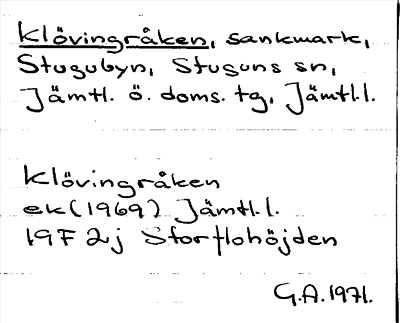 Klövingråken, sankmark,
Stugubyn, Stuguns sn,
Jämtl. ö. doms. tg, Jämtl.l.
Klövingråken
ek (1969) Jämtl.l.
19F 2j Storflohöjden
G.A. 1971.